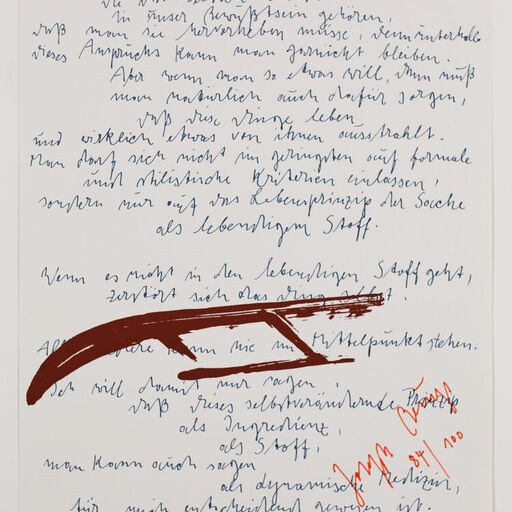 in unser Bewußtsein gehören,
daß man sie hervorheben müsse, denn unterhalb
dieses Anspruchs kann man garnicht bleiben.
Aber wenn man so etwas will, dann muß
man natürlich auch dafür sorgen,
daß diese Dinge leben
und wirklich etwas von ihnen ausstrahlt.
Man darf sich nicht im geringsten auf formale
und stilistische Kriterien einlassen,
sondern nur auf das Lebensprinzip der Sache
als lebendigem Stoff.
Wenn es nicht in den lebendigen Stoff geht,
zerstört sich das Ding selbst.
kann nie im Mittelpunkt stehen.
Ich will damit nur sagen,
daß dieses selbstverändernde Prinzip
als Ingredienz,
als Stoff,
man kann auch sagen
als dynamische Medizin,
für mich entscheidend gewesen ist.
Joseph Beuys
84/100